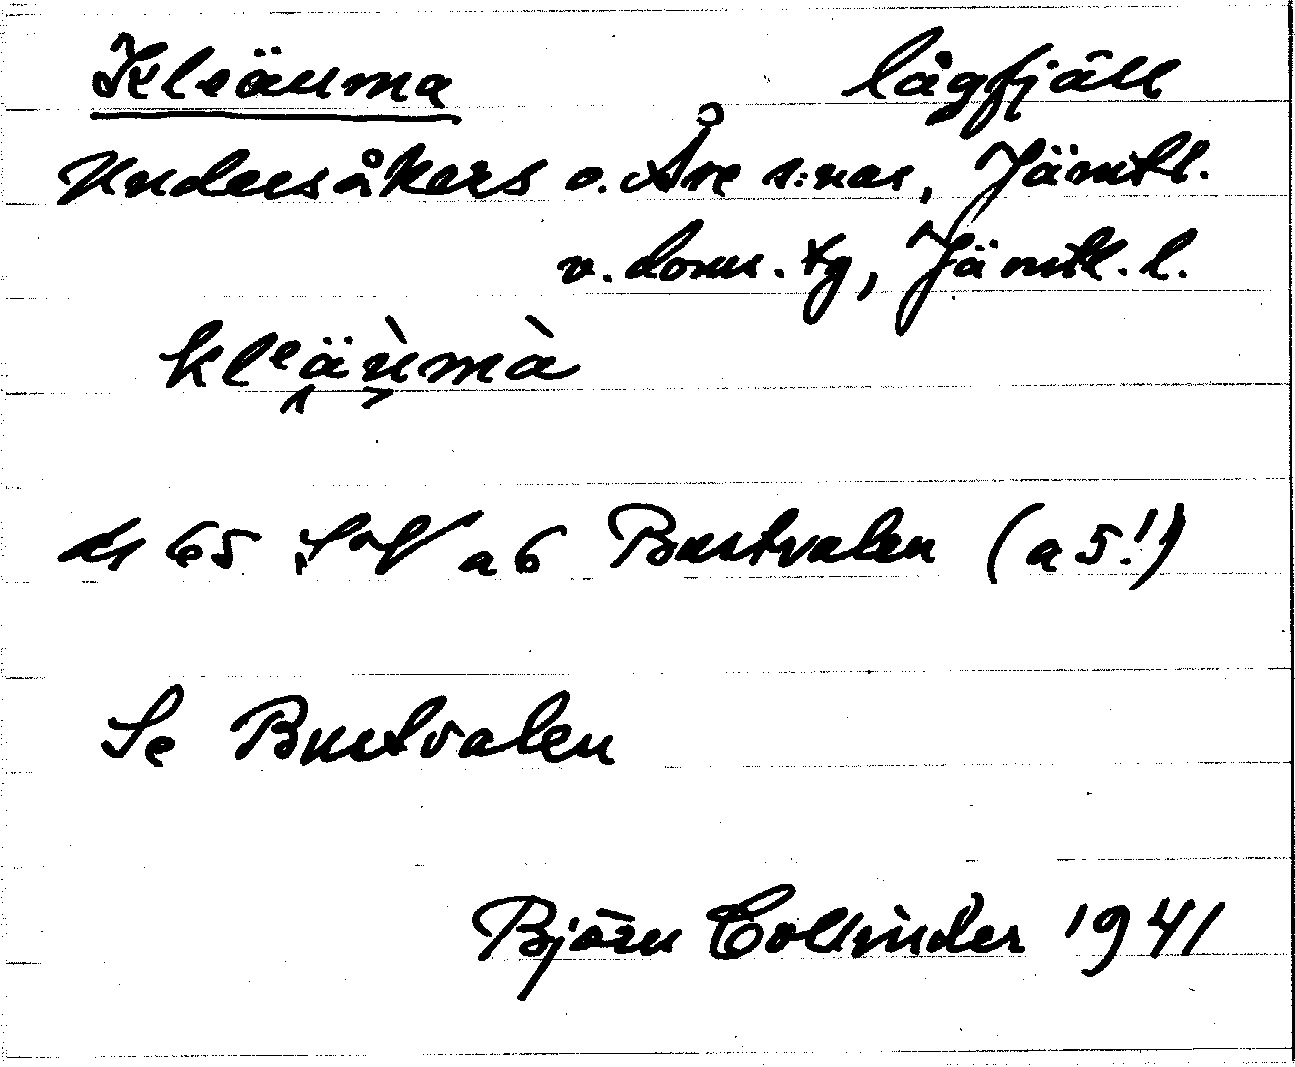 Kleäuma lågfjäll
Undersåkers o. Åre s:nar, Jämtl.
v. doms. tg, Jämtl. l.
kleäu̇mà
ds 65 SV a6 Bustvalen (a5!)
Se Bustvalen
Björn Collinder 1941